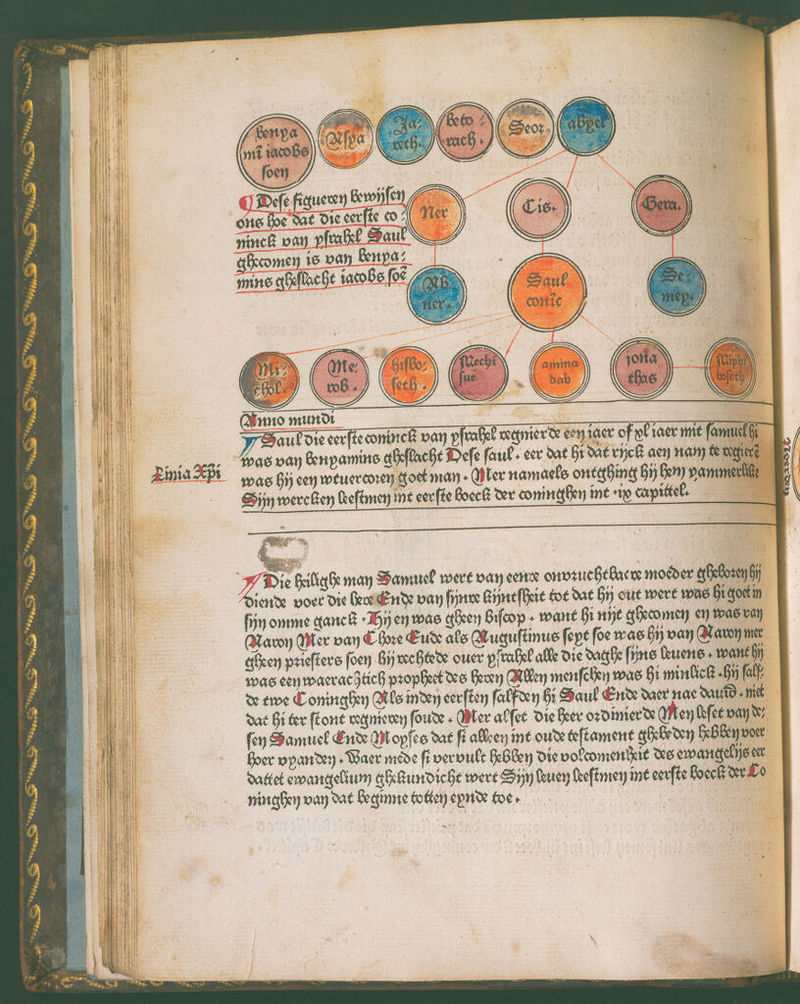 benya
mī iacobs
soen
Aspa
Ja⸗
reth.
beto⸗
rach.
Seor.
abyel
¶ Dese figueren bewijsen
ons hoe dat die eerste co⸗
ninck van ysrahel Saul
ghecomen is van benya⸗
mins gheslacht iacobs soē
Ner
Cis.
Gera.
Ab
ner.
Saul
conīc
Se⸗
mey.
Mi⸗
chol.
Me⸗
rob.
hisbo⸗
seth.
Mechi
sue
amina
dab
iona
thas
Miphi
boseth
Anno mundi
¶ Saul die eerste coninck van ysrahel regnierde een iaer of xl iaer mit samuel hi
was van benyamins gheslacht Dese saul. eer dat hi dat rijck aen nam te regierē
Linia Xp̄i
was hij een wtuercoren goet man. Mer namaels ontghing hij hem yammerlike
Sijn wercken leestmen int eerste boeck der coninghen int .ix capittel.
¶ Die heilighe man Samuel wert van eenre onvruchtbacre moeder gheboren hij
diende voer die here Ende van sijnre kijntsheit tot dat hij out wert was hi goet in
sijn omme ganck. Hij en was gheen biscop. want hi nijt ghecomen en was van
Aaron Mer van Chore Ende als Augustinus seyt soe was hij van Aaron mer
gheen priesters soen hij rechtede ouer ysrahel alle die daghe sijns leuens. want hij
was een waerachtich propheet des heren Allen menschen was hi minlick. hij salf⸗
de twe Coninghen Als inden eersten salfden hi Saul Ende daer nae dauid. niet
dat hi ter stont regnieren soude. Mer alset die heer ordinierde Men leset van de⸗
sen Samuel Ende Moyses dat si alleen int oude testament ghebeden hebben voer
hoer vyanden. Waer mede si vervult hebben die volcomenheit des ewangelijs eer
dattet ewangelium ghekundicht wert Sijn leuen leestmen int eerste boeck der Co
ninghen van dat beginne totten eynde toe.